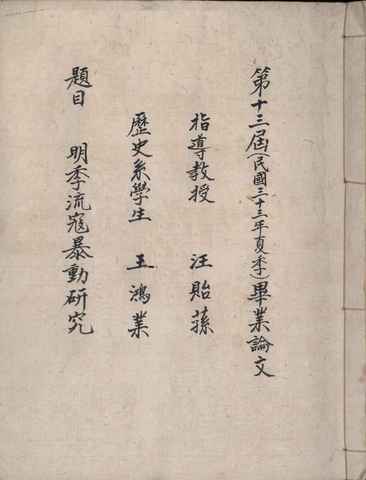 第十三屆(民國三十三年夏季)畢業論文
指導教授 汪貽蓀
歷史系學生 王鴻業
題目 明季流寇暴動研究